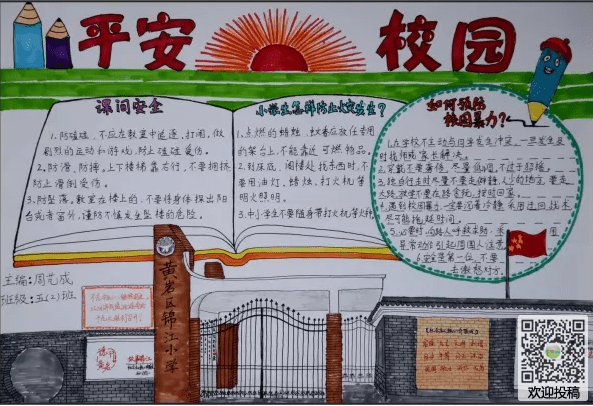 平安校园
课间安全
1.防磕碰。不应在教室中追逐、打闹,做
剧烈的运动和游戏,防止磕碰受伤。
2.防滑、防摔。上下楼梯靠右行,不要拥挤,
防止滑倒受伤。
3.防坠落。教室在楼上的,不要将身体探出阳
台或者窗外,谨防不慎发生坠楼的危险。
小学生怎样防止火灾发生?
1.点燃的蜡烛、蚊香应放在专用
的架台上,不能靠近可燃物品。
2.到床底、阁楼处找东西时,不
要用油灯、蜡烛、打火机等
明火照明。
3.中小学生不要随身带打火机等火种
如何预防
校园暴力?
1.在学校不主动与同学发生冲突,一旦发生及
时找老师
解决。
2.穿戴不要奢侈,尽量低调,不过于招摇。
3.独自行走时尽量不要走僻静、人少的地方,要走
大路,放学不要在路贪玩,按时回家。
4.遇到校园暴力,一定要沉着冷静。采用迂回战术,
尽可能拖延时间。
5.必要时,向路人呼救求助,采
异常动作引起周围人注意。
6.安全是第一位,不要
去激怒对方。
主编:周芃成
班级:五(2)班
黄岩区锦江小学
欢迎投稿